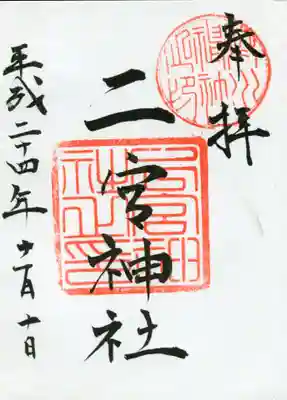 奉拝
二宮神社
平成二十四年十一月十日